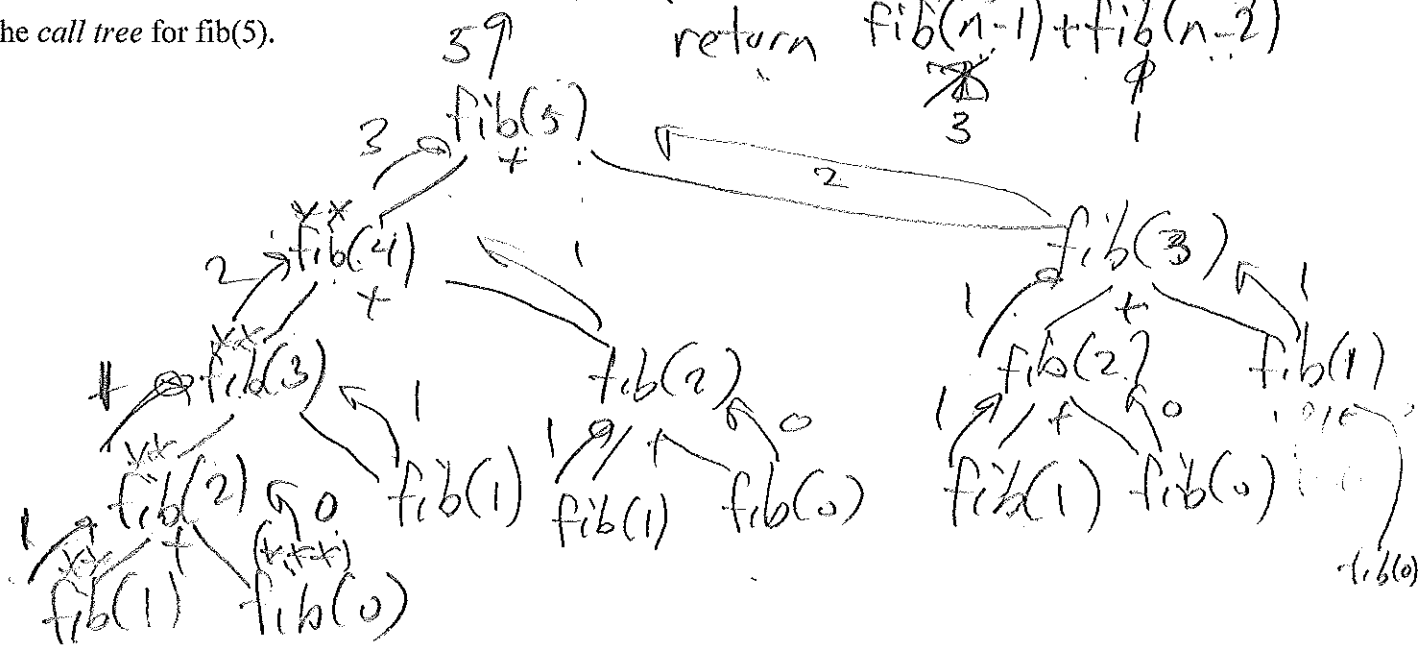 he call tree for fib(5).
return fib(n-1) + fib(n-2)
3 1
5
fib(5)
+
3
2
fib(4)
+
2
1
fib(3)
+
1
1
fib(3)
1
fib(2)
+
0
1
fib(2)
+
0
fib(1)
fib(2)
+
0
fib(1)
1
fib(1)
fib(0)
1
fib(1)
fib(0)
1
fib(1)
fib(0)
fib(0)